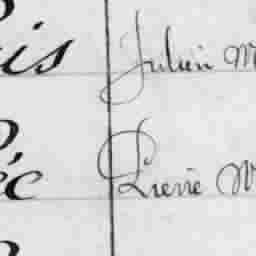 is Julien M
éc Pierre W